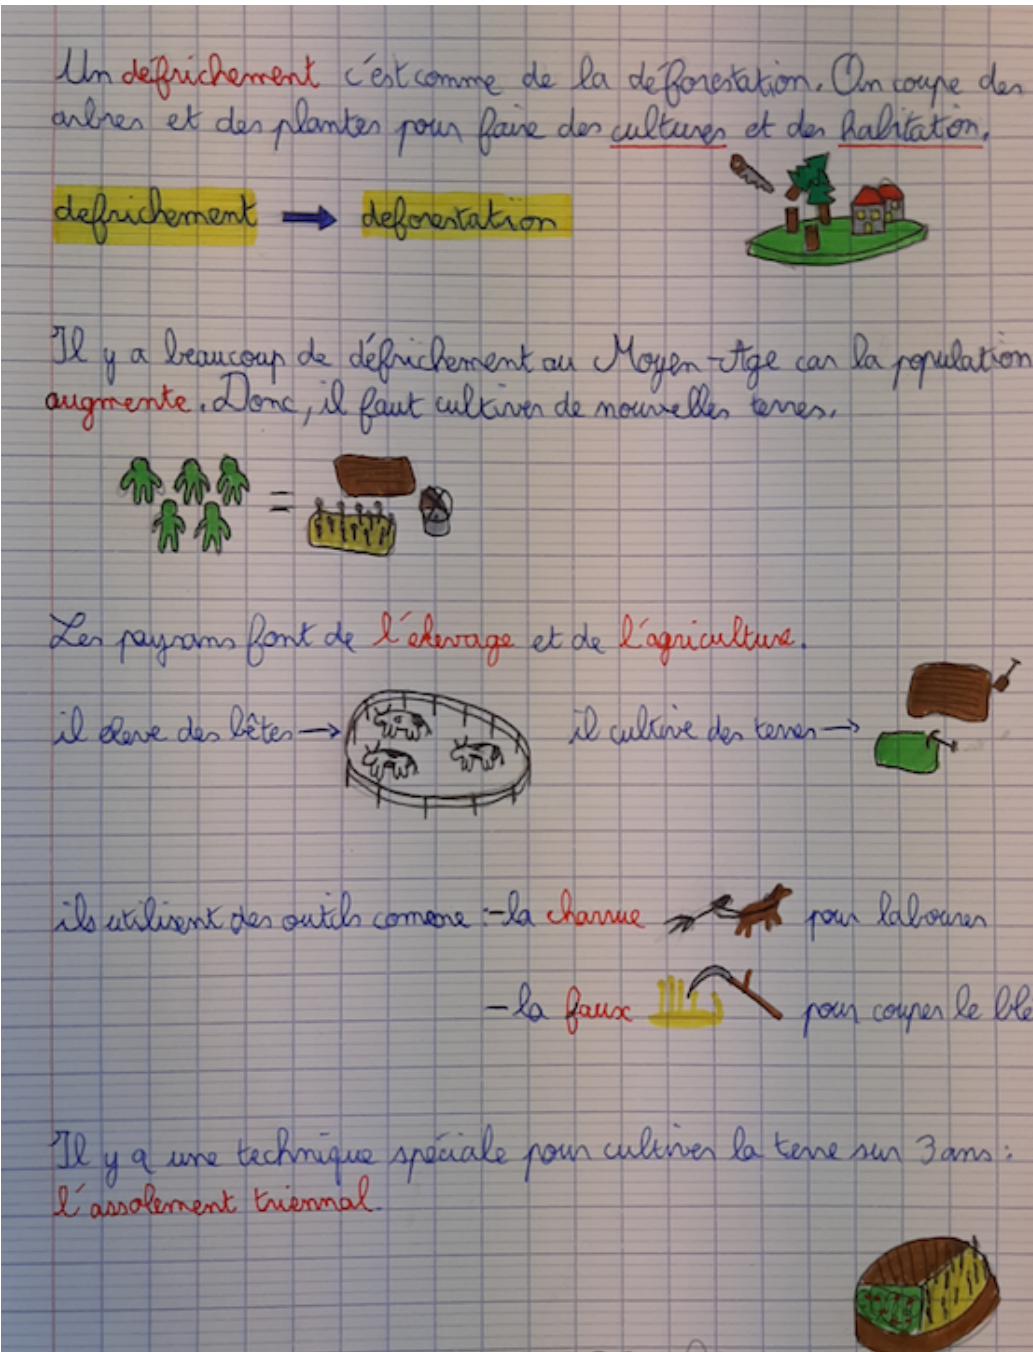 Un defrichement c'est comme de la déforestation. On coupe des
arbres et des plantes pour faire des cultures et des habitation.
defrichement → deforestation
Il y a beaucoup de défrichement au Moyen-Age car la population
augmente. Donc, il faut cultiver de nouvelles terres.
=
Les paysans font de l'élevage et de l'agriculture.
il eleve des bêtes → il cultive des terres →
ils utilisent des outils comme : - la charrue pour labourer
- la faux pour couper le blé
Il y a une technique spéciale pour cultiver la terre sur 3 ans :
l'assolement triennal.